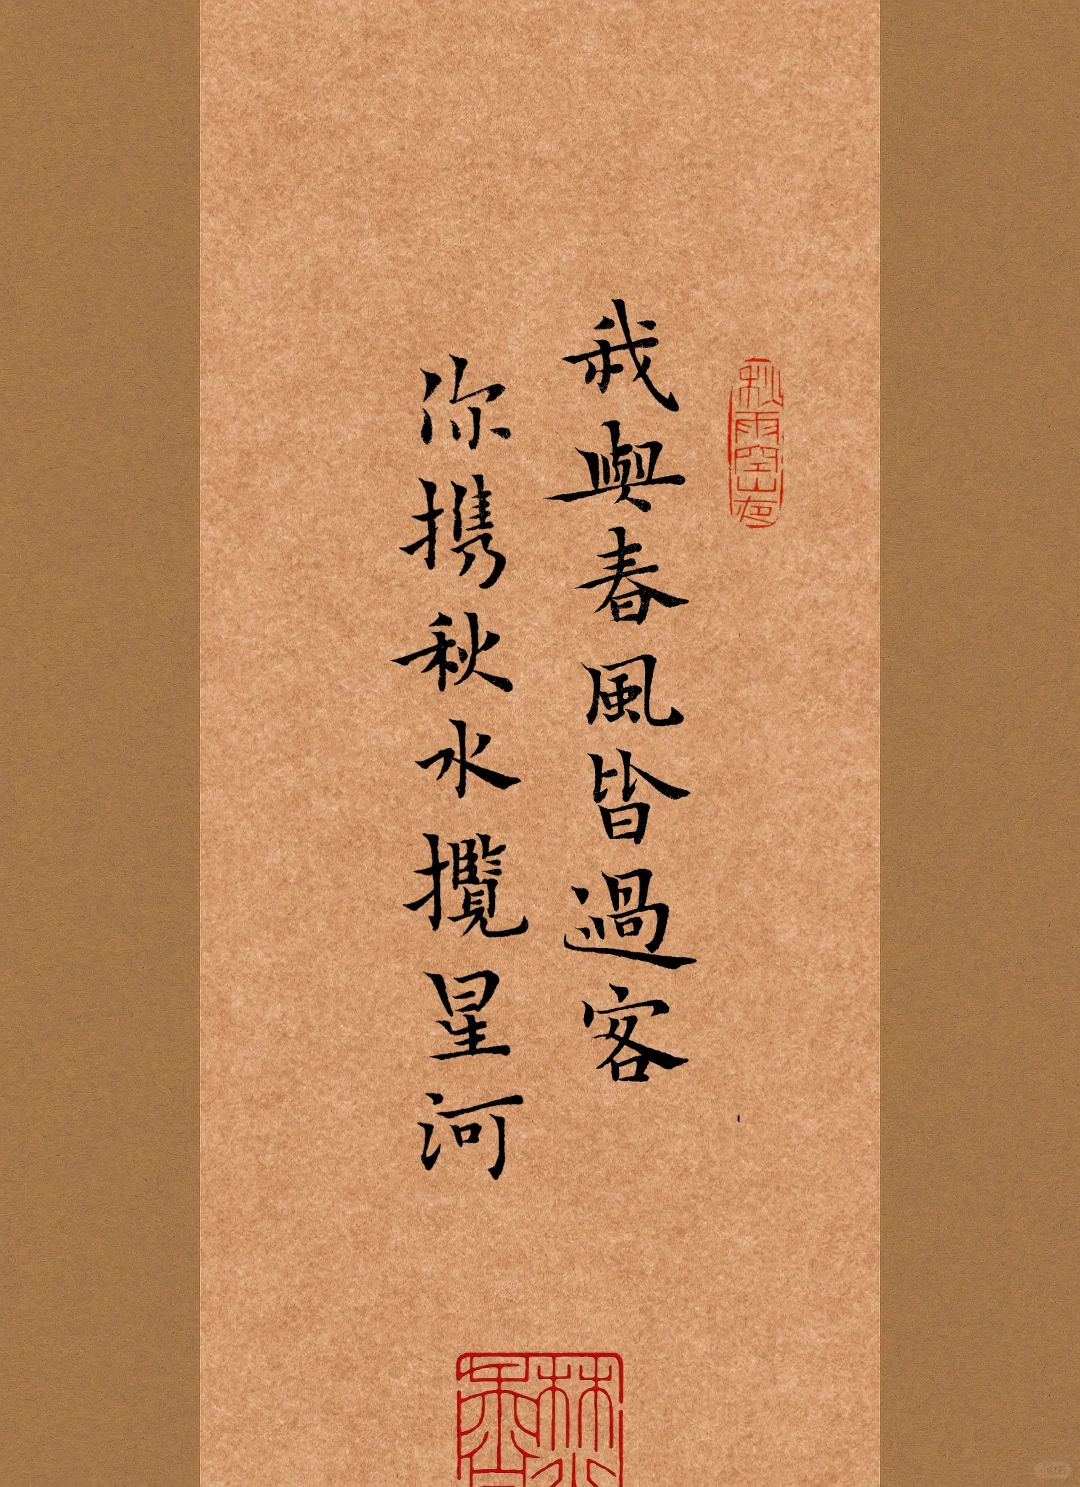 我與春風皆過客
你携秋水攬星河
秋雨空山夜